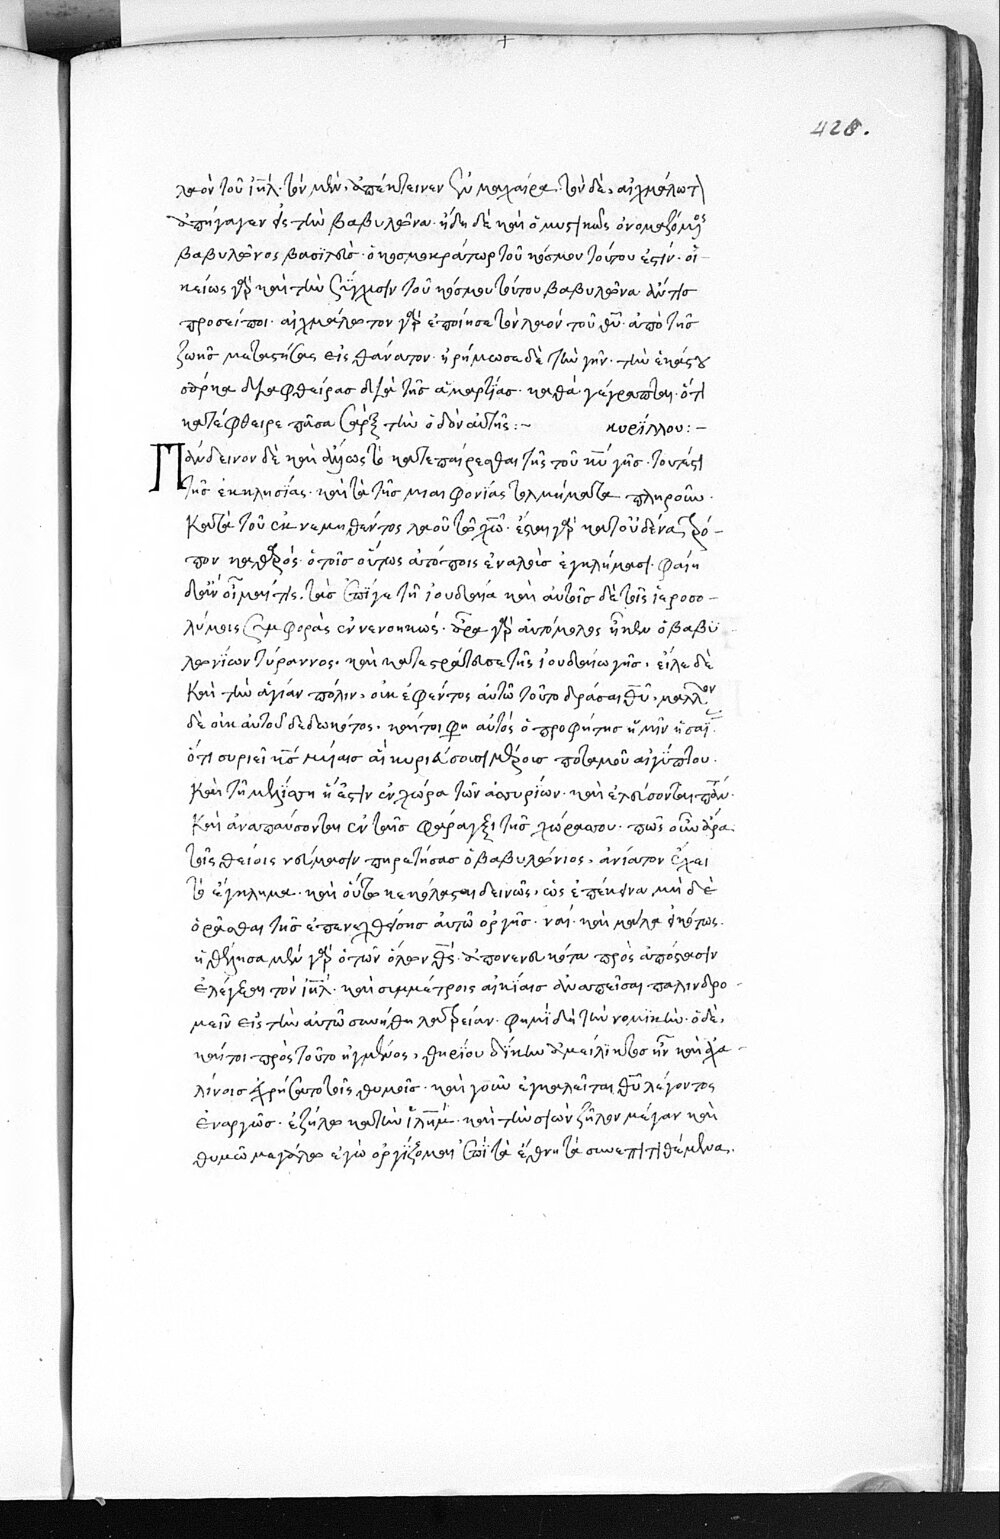 428.
λαὸν τοῦ ἰηλ· τὸν μὲν, ἀπέκτεινεν ἐν μαχαίρα, τὸν δὲ, αἰχμάλωτ
ἀπήγαγεν εἰς τὴν βαβυλῶνα· ἤδη δὲ καὶ ὁ μυστικῶς ὀνομαζόμενος
βαβυλῶνος βασιλεὺς· ὁ κοσμοκράτωρ τοῦ κόσμου τούτου ἐστὶν· οἰ-
κείως γὰρ καὶ τὴν σύγχυσιν τοῦ κόσμου τούτου βαβυλῶνα ἄν τις
προσείποι· αἰχμάλωτον γὰρ ἐποίησε τὸν λαὸν τοῦ θυ· ἀπὸ τῆς
ζωῆς μεταστήσας εἰς θάνατον· ἠρήμωσε δὲ τὴν γῆν· τὴν ἑκάστου
σάρκα διαφθείρας διὰ τῆς ἁμαρτίας· καθὰ γέγραπται· ὅτι
κατέφθειρε πᾶσα σὰρξ τὴν ὁδὸν αὐτῆς:~ κυρίλλου:-
Πάνδεινον δὲ καὶ ἀληθῶς τὸ κατεπαίρεσθαι τῆς τοῦ κυ γῆς· τουτέστι
τῆς ἐκκλησίας· καὶ τὰ τῆς μιαιφονίας τολμήματα πληροῦν·
Κατὰ τοῦ ἐκνεμηθέντος λαοῦ τῷ χω· ἔσται γὰρ κατ' οὐδένα τρό-
πον καθαρός· ὁ τοῖς οὕτως ἀτόποις ἐναλοὺς ἐγκλήμασι· φαίη
δ' ἂν οἶμαί τις, τὰς ἐπί γε τῆ ἰουδαία καὶ αὐτοῖς δὲ τοῖς ἱεροσο-
λύμοις συμφορὰς ἐννενοηκώς· ἆρα γὰρ αὐτόμολος ἧκεν ὁ βαβυ
λωνίων τύραννος, καὶ κατεστράτευσε τῆς ἰουδαίων γῆς, εἷλε δὲ
Καὶ τὴν ἁγίαν πόλιν, οὐκ ἐφέντος αὐτῶ τοῦτο δρᾶσαι θυ, μᾶλλον
δὲ οὐκ αὐτοῦ δεδωκότος, καίτοι φησὶν αὐτὸς ὁ προφήτης ἡμῖν ἡσαΐ
ὅτι συριεῖ κς μυίαις αἳ κυριεύσουσι μέρους ποταμοῦ αἰγύπτου·
Καὶ τῆ μελίσση ἥ ἐστιν ἐν χώρα τῶν ἀσσυρίων· καὶ ἐλεύσονται πάν·
Καὶ ἀναπαύσονται ἐν ταῖς φάραγξι τῆς χώρας σου· πῶς οὖν ἄρα
τοῖς θείοις νεύμασιν ὑπηρετήσας ὁ βαβυλώνιος, ἀνίατον ἔχει
τὸ ἔγκλημα· καὶ οὕτω κεκόλασται δεινῶς, ὡς ἐπέκεινα μηδὲ
ὁρᾶσθαι τῆς ἐπενεχθείσης αὐτῶ ὀργῆς· ναί· καὶ μάλα εἰκότως·
ἠθέλησε μὲν γὰρ ὁ τῶν ὅλων θς· ἀπονενευκότα πρὸς ἀπόστασιν
ἐλέγξαι τὸν ἰηλ· καὶ συμμέτροις αἰκίαις ἀναπεῖσαι παλινδρο-
μεῖν εἰς τὴν αὐτῶ συνήθη λατρείαν· φημὶ δὴ τὴν νομικὴν· ὁ δὲ,
καίτοι πρὸς τοῦτο ἠγμένος, θηρίου δίκην ἀμείλικτος ἦν καὶ ἀχα-
λίνοις ἐχρήσατο τοῖς θυμοῖς· καὶ γοῦν ἐγκαλεῖται θυ λέγοντος
ἐναργῶς· ἐζήλωκα τὴν ἱλημ· καὶ τὴν σιὼν ζῆλον μέγαν καὶ
θυμῶ μεγάλω ἐγὼ ὀργίζομαι ἐπὶ τὰ ἔθνη τὰ συνεπιτιθέμενα.